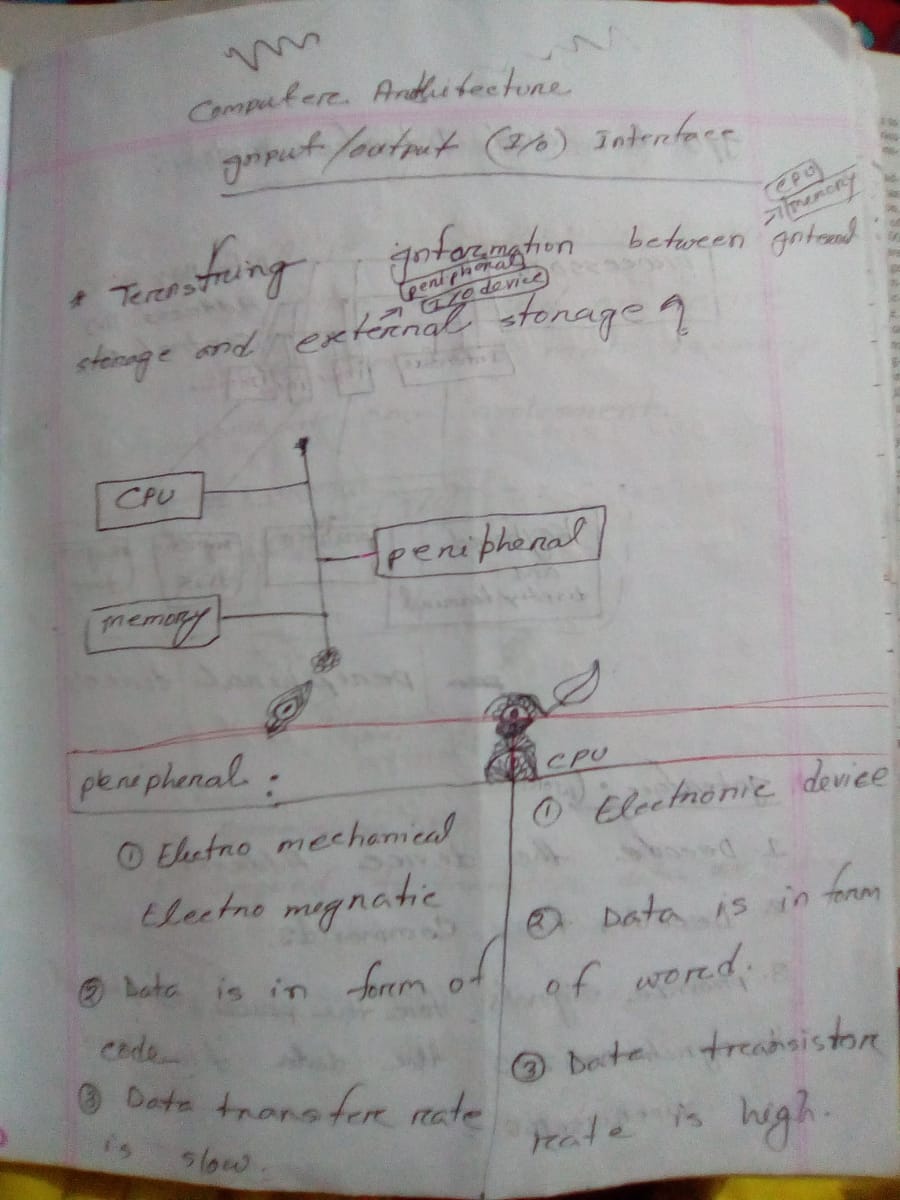 Computere Architecture
Input/output (I/O) Interface
CPU
memory
* Terenstring information between internal
peripheral
I/O device
storage and external storage
CPU
peripheral
memory
peripheral :
① Electro mechanical
Electro megnatic
② Data is in form of
code
③ Data transfere reate
is slow.
CPU
① Electronic device
② Data is in form
of wored.
③ Data treansistore
reate is high.